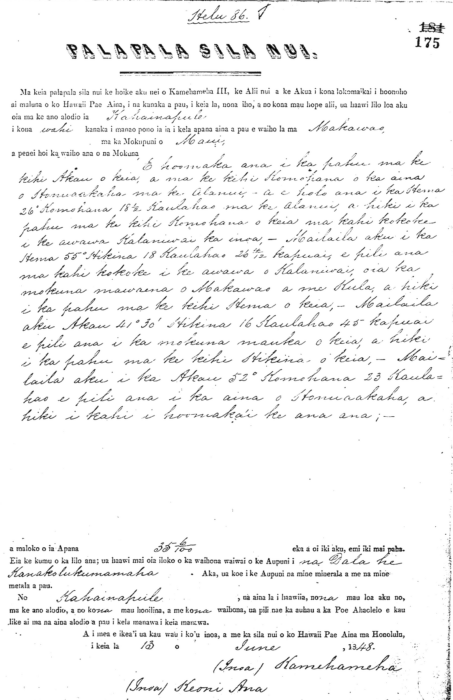 Helu 86.
181
175
PALAPALA SILA NUI.
Ma keia palapala sila nui ke hoike aku nei o Kamehameha III, ke Alii nui a ke Akua i kona lokomaikai i hoonoho
ai maluna o ko Hawaii Pae Aina, i na kanaka a pau, i keia la, nona iho, a no kona mau hope alii, ua haawi lilo loa aku
oia ma ke ano alodio ia Kahainapule
i kona wahi kanaka i manao pono ia ia i kela apana aina a pau e waiho la ma Makawao
ma ka Mokupuni o Maui,
a penei hoi ka waiho ana o na Mokuna
E hoomaka ana i ka pahu ma ke
kihi Akau o keia, a ma ke kihi Komohana o ka aina
o Honuaakaha ma ke Alanui, - a e holo ana i ka Hema
26° Komohana 18½ Kaulahao ma ke Alanui, a hiki i ka
pahu ma ke kihi Komohana o keia ma kahi kokoke
i ke awawa Kalaniwai ka inoa, - Mailaila aku i ka
Hema 55° Hikina 18 Kaulahao 26 kapuai, e pili ana
ma kahi kokoke i ke awawa o Kalaniwai, oia ka
mokuna mawaena o Makawao a me Kula, a hiki
i ka pahu ma ke kihi Hema o keia, - Mailaila
aku Akau 41° 30' Hikina 16 Kaulahao 45 kapuai
e pili ana i ka mokuna mauka o keia, a hiki
i ka pahu ma ke kihi Hikina o keia, - Mai-
laila aku i ka Akau 52° Komohana 23 Kaula-
hao e pili ana i ka aina o Honuaakaha, a
hiki i kahi i hoomakai ke ana ana; -
a maloko o ia Apana 35 6/100 eka a oi iki aku, emi iki mai paha.
Eia ke kumu o ka lilo ana; ua haawi mai oia iloko o ka waihona waiwai o ke Aupuni i na Dala he
Kanakolukumamaha. Aka, ua koe i ke Aupuni na mine minerala a me na mine
metala a pau.
No Kahainapule, ua aina la i haawiia, nona mau loa aku no,
ma ke ano alodio, a no kona mau hooilina, a me kona waihona, ua pili nae ka auhau a ka Poe Ahaolelo e kau
like ai ma na aina alodio a pau i kela manawa i keia manawa.
A i mea e ikea'i ua kau wau i ko'u inoa, a me ka sila nui o ko Hawaii Pae Aina ma Honolulu,
i keia la 13 o Iune, 1848.
(Inoa) Kamehameha
(Inoa) Keoni Ana